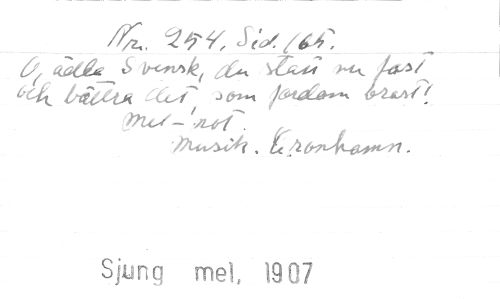 Nr. 254, Sid. 165.
O, ädla Svensk, du statt nu fast
och bättra det, som fordom brast!
mel-not.
Musik. Cronhamn.
Sjung mel, 1907